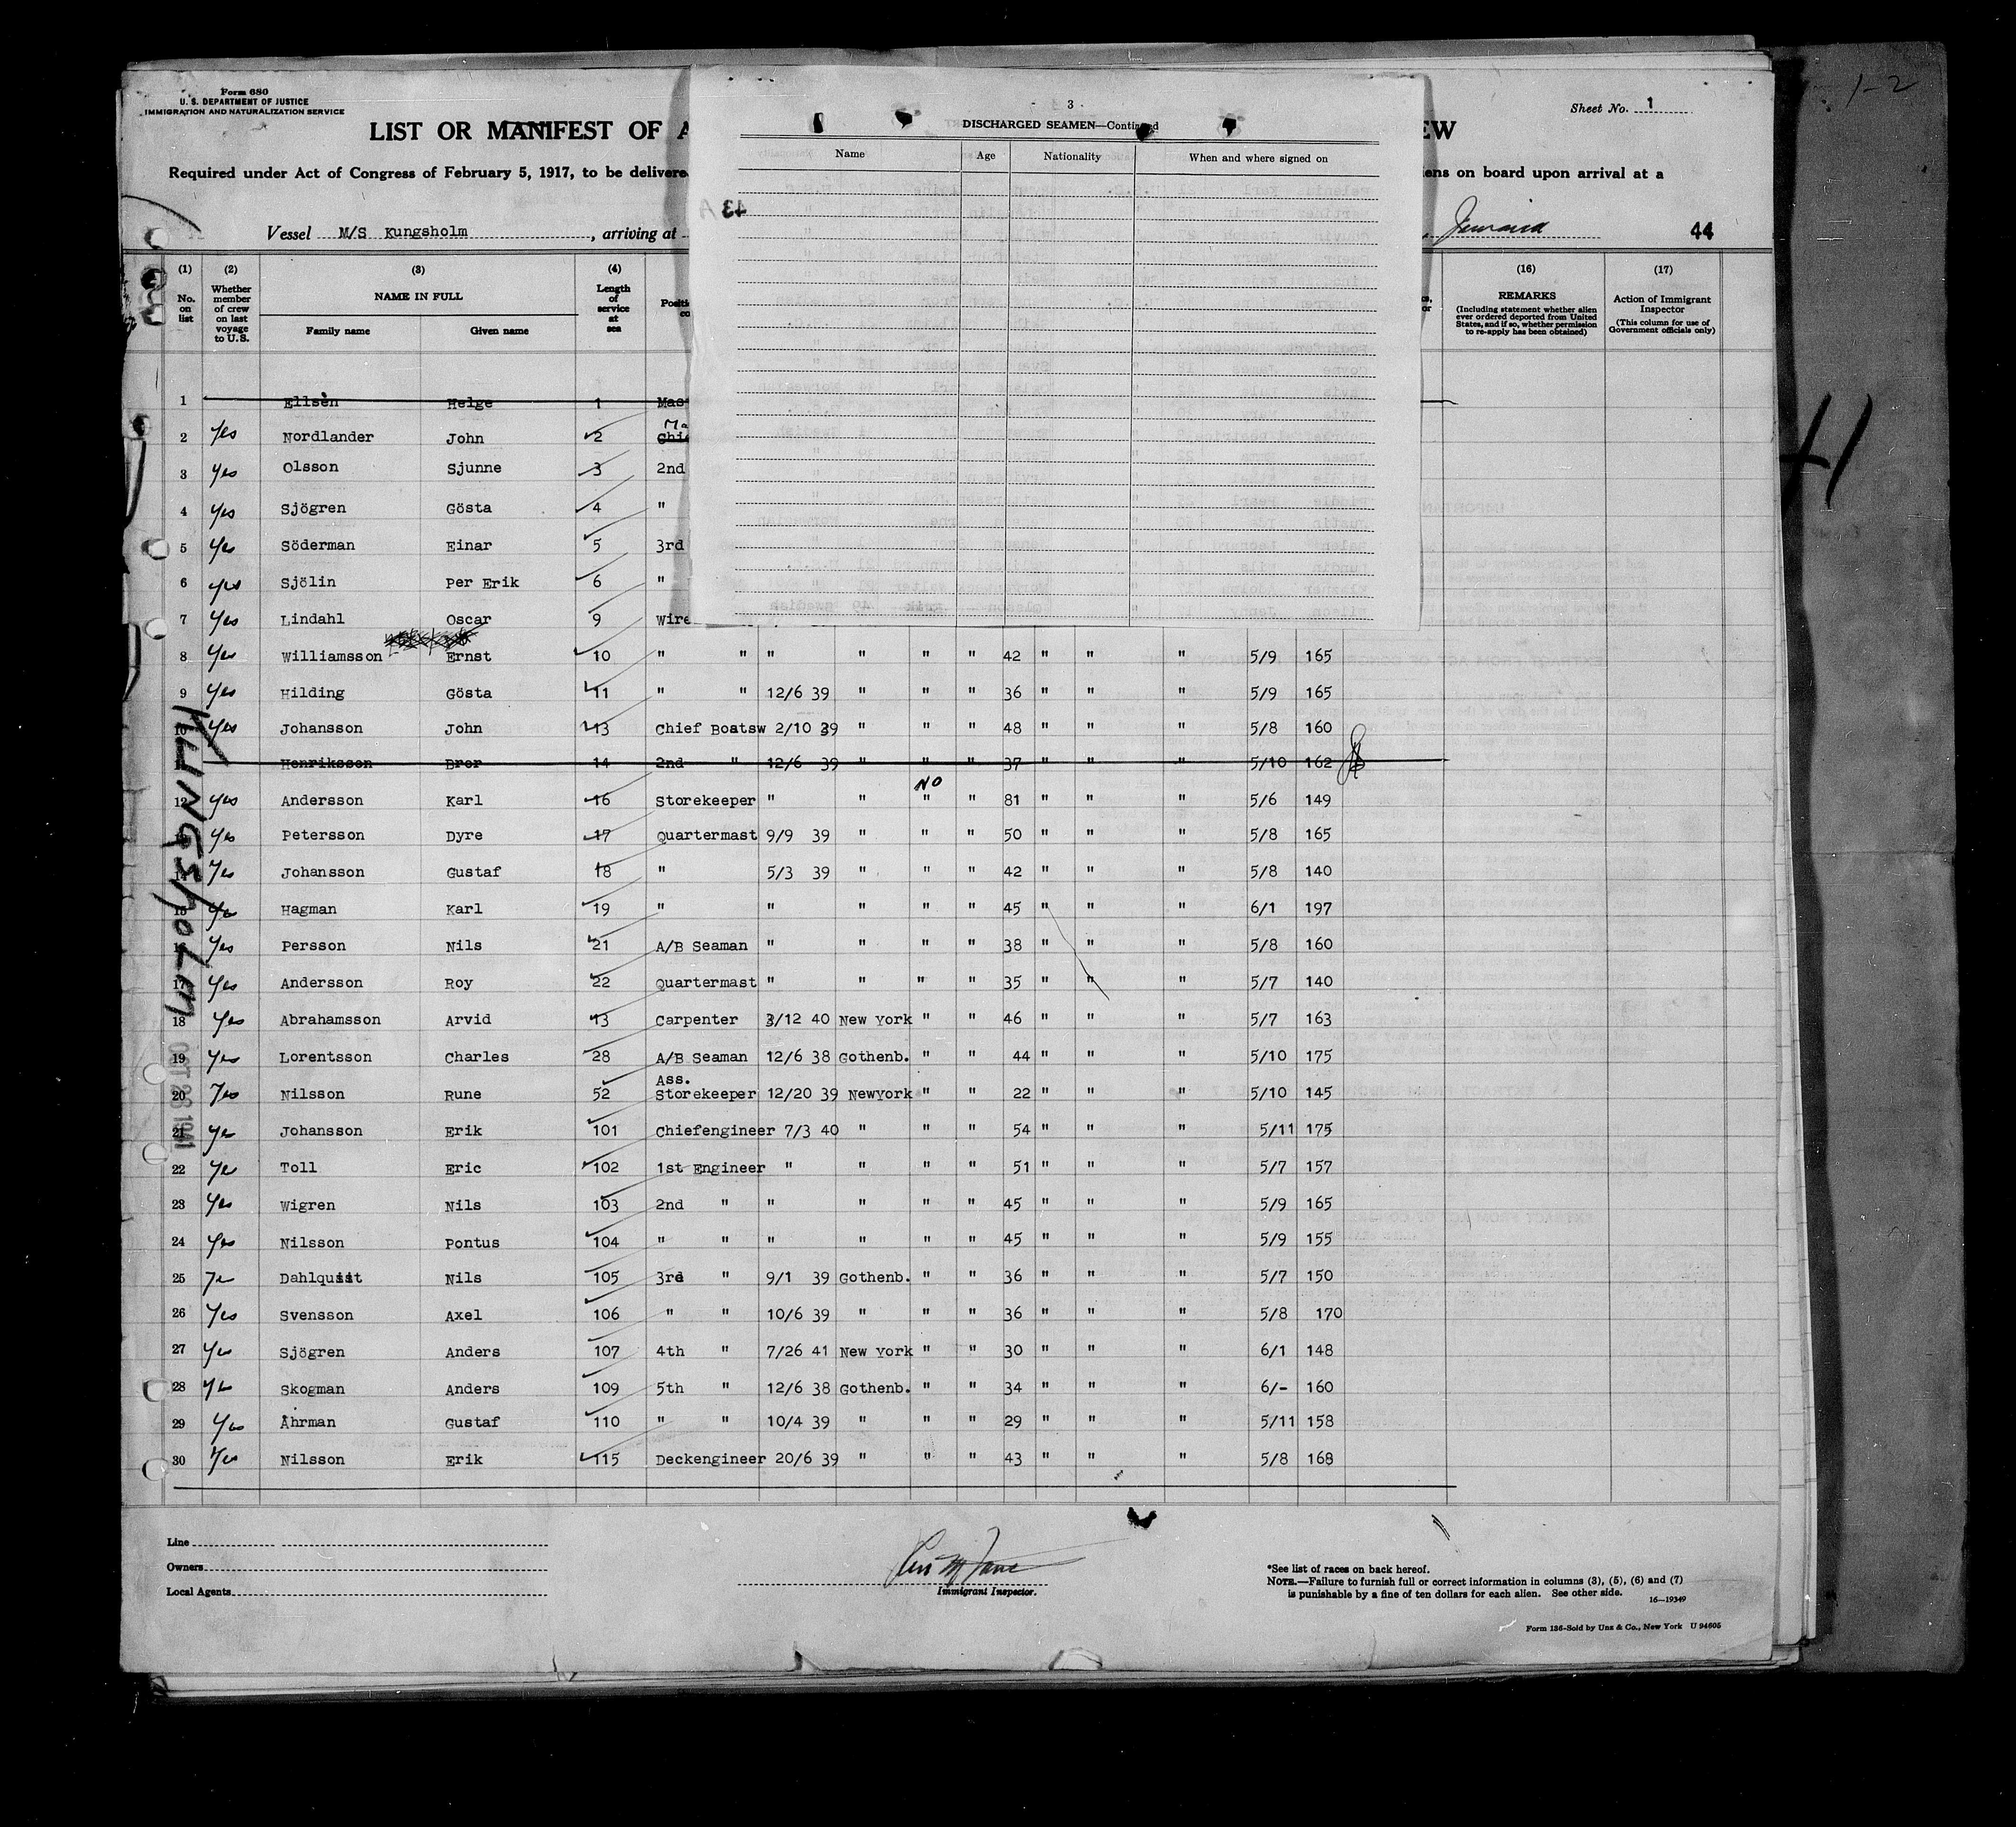 Form 680
U. S. DEPARTMENT OF JUSTICE
IMMIGRATION AND NATURALIZATION SERVICE
Sheet No. 1
LIST OR MANIFEST OF A
EW
Required under Act of Congress of February 5, 1917, to be delivere
iens on board upon arrival at a
Vessel M/S Kungsholm, arriving at
Jamaica
44
- 3 -
DISCHARGED SEAMEN—Continued
Name Age Nationality When and where signed on
(1) No. on list
(2) Whether member of crew on last voyage to U.S.
(3) NAME IN FULL
Family name Given name
(4) Length of service at sea
Positi
co
(16) REMARKS
(Including statement whether alien ever ordered deported from United States, and if so, whether permission to re-apply has been obtained)
(17) Action of Immigrant Inspector
(This column for use of Government officials only)
1 Ellsèn Helge 1 Mas
2 Yes Nordlander John 2 Chie Ma
3 Yes Olsson Sjunne 3 2nd
4 Yes Sjögren Gösta 4 "
5 Yes Söderman Einar 5 3rd
6 Yes Sjölin Per Erik 6 "
7 Yes Lindahl Oscar 9 Wire
8 Yes Williamsson Ernst 10 " " " " " " 42 " " " 5/9 165
9 Yes Hilding Gösta 11 " " 12/6 39 " " " 36 " " " 5/9 165
10 Yes Johansson John 13 Chief Boatsw 2/10 39 " " " 48 " " " 5/8 160
11 Henriksson Bror 14 2nd " 12/6 39 " " " 37 " " " 5/10 162
NO
12 Yes Andersson Karl 16 Storekeeper " " " " 81 " " " 5/6 149
13 Yes Petersson Dyre 17 Quartermast 9/9 39 " " " 50 " " " 5/8 165
14 Yes Johansson Gustaf 18 " 5/3 39 " " " 42 " " " 5/8 140
15 Yes Hagman Karl 19 " " " " " 45 " " " 6/1 197
16 Yes Persson Nils 21 A/B Seaman " " " " 38 " " " 5/8 160
17 Yes Andersson Roy 22 Quartermast " " " " 35 " " " 5/7 140
18 Yes Abrahamsson Arvid 13 Carpenter 3/12 40 New York " " 46 " " " 5/7 163
19 Yes Lorentsson Charles 28 A/B Seaman 12/6 38 Gothenb. " " 44 " " " 5/10 175
20 Yes Nilsson Rune 52 Ass. Storekeeper 12/20 39 NewYork " " 22 " " " 5/10 145
21 Yes Johansson Erik 101 Chiefengineer 7/3 40 " " " 54 " " " 5/11 175
22 Yes Toll Eric 102 1st Engineer " " " " 51 " " " 5/7 157
23 Yes Wigren Nils 103 2nd " " " " " 45 " " " 5/9 165
24 Yes Nilsson Pontus 104 " " " " " " 45 " " " 5/9 155
25 Yes Dahlquist Nils 105 3rd " 9/1 39 Gothenb. " " 36 " " " 5/7 150
26 Yes Svensson Axel 106 " " 10/6 39 " " " 36 " " " 5/8 170
27 Yes Sjögren Anders 107 4th " 7/26 41 New York " " 30 " " " 6/1 148
28 Yes Skogman Anders 109 5th " 12/6 38 Gothenb. " " 34 " " " 6/- 160
29 Yes Åhrman Gustaf 110 " " 10/4 39 " " " 29 " " " 5/11 158
30 Yes Nilsson Erik 115 Deckengineer 20/6 39 " " " 43 " " " 5/8 168
KUNGSHOLM
OCT 28 1941
Line
Owners
Local Agents
Immigrant Inspector.
*See list of races on back hereof.
NOTE.—Failure to furnish full or correct information in columns (3), (5), (6) and (7)
is punishable by a fine of ten dollars for each alien. See other side.
16—19349
Form 136-Sold by Unz & Co., New York U 94605
1-2